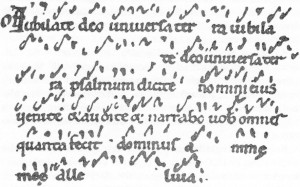 Iubilate deo universa ter ra iubila
te deo universa ter
ra psalmum dicite nomini eius
venite & audite & narrabo vob omnes
quanta fecit dominus a nime
mee alle luia